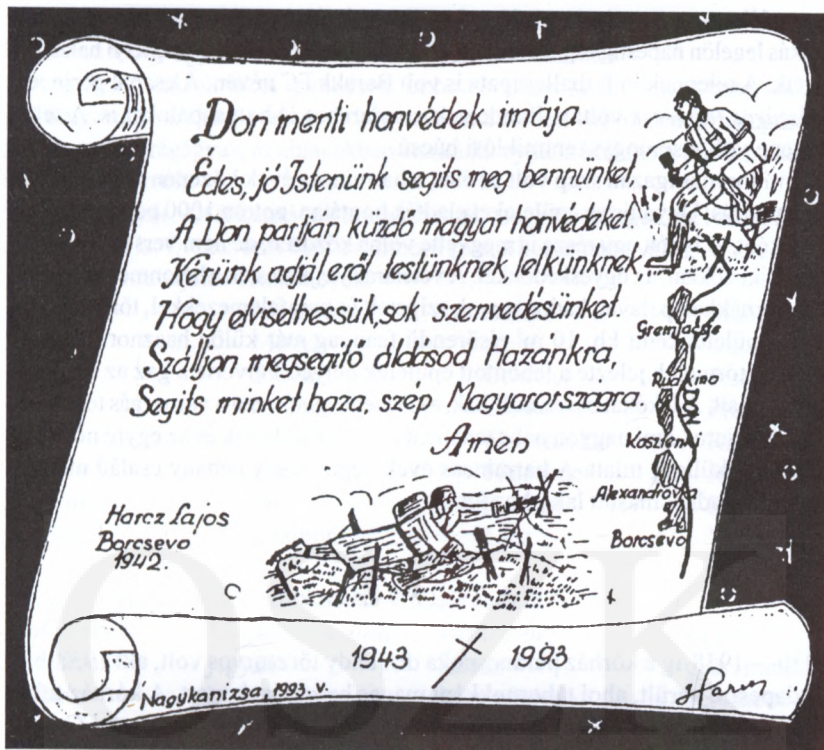 Don menti honvédek imája.
Édes, jó Istenünk segíts meg bennünket,
A Don partján küzdő magyar honvédeket.
Nékünk adjál erőt testünknek, lelkünknek
Hogy elviselhessük sok szenvedésünket.
Szálljon megsegítő áldásod hazánkra,
Segíts minket haza, szép Magyarországra.
Ámen
Gremjacse
Kosztenki
Alexandrovka
Borcsevo
Harcz Lajos
Borcsevo
1942.
1943 1993
Nagykanizsa, 1993. V.
OSZK